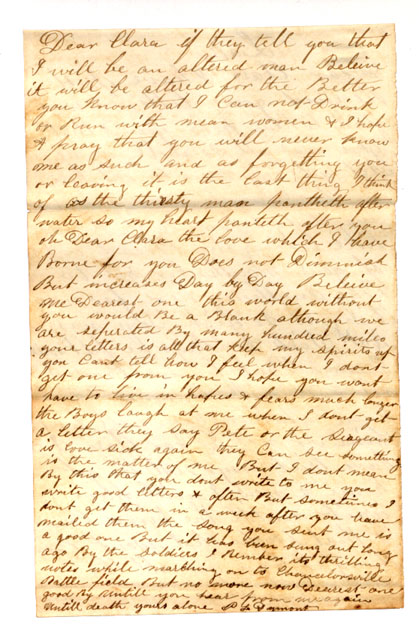 Dear Clara if they tell you that
I will be an altered man Beleive
it will be altered for the Better
you know that I Can not Drink
or Run with mean women & I hope
& pray that you will never know
me as such and as forgetting you
or leaving it is the last thing I think
of as the thirsty man pantheth after
water so my heart panteth after you
oh Dear Clara the love which I have
Borne for you Does not Diminish
But increases Day by Day Beleive
me Dearest one this world without
you would Be a Blank although we
are seperated By many hundred miles
your letters is all that keep my spirits up
you Cant tell how I feel when I dont
get one from you I hope you wont
have to live in hopes & fears much longer
the Boys laugh at me when I dont get
a letter they say Pete or the Sergeant
is love sick again they Can see something
is the matter of me But I dont mean
By this that you dont write to me you
write good letters & often But sometimes I
dont get them in a week after you have
mailed them the song you sent me is
a good one But it has ben sung out long
ago By the soldiers I Rember its thrilling
notes while marching on to Chancelorsville
Battle field But no more now Dearest one
good By untill you hear from me again
untill death yours alone